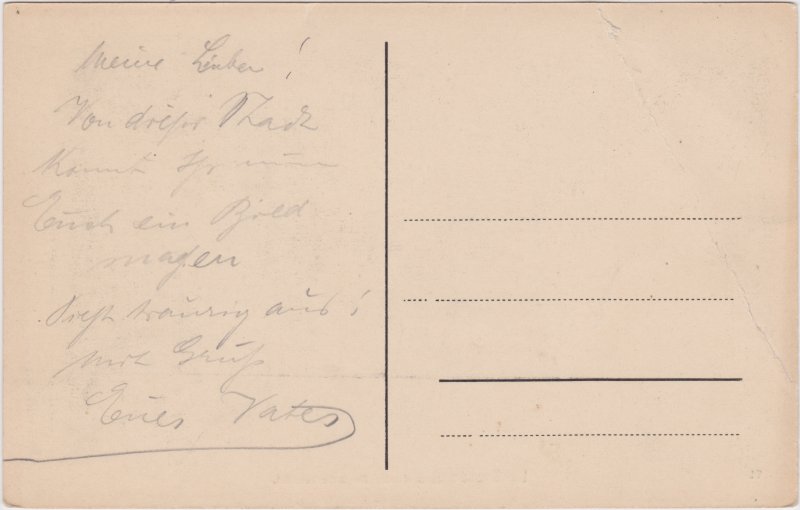 Meine Lieben!
Von dieser Stadt
könnt Ihr nun
Euch ein Bild
machen
Sieht traurig aus!
mit Gruß
Euer Vater
17